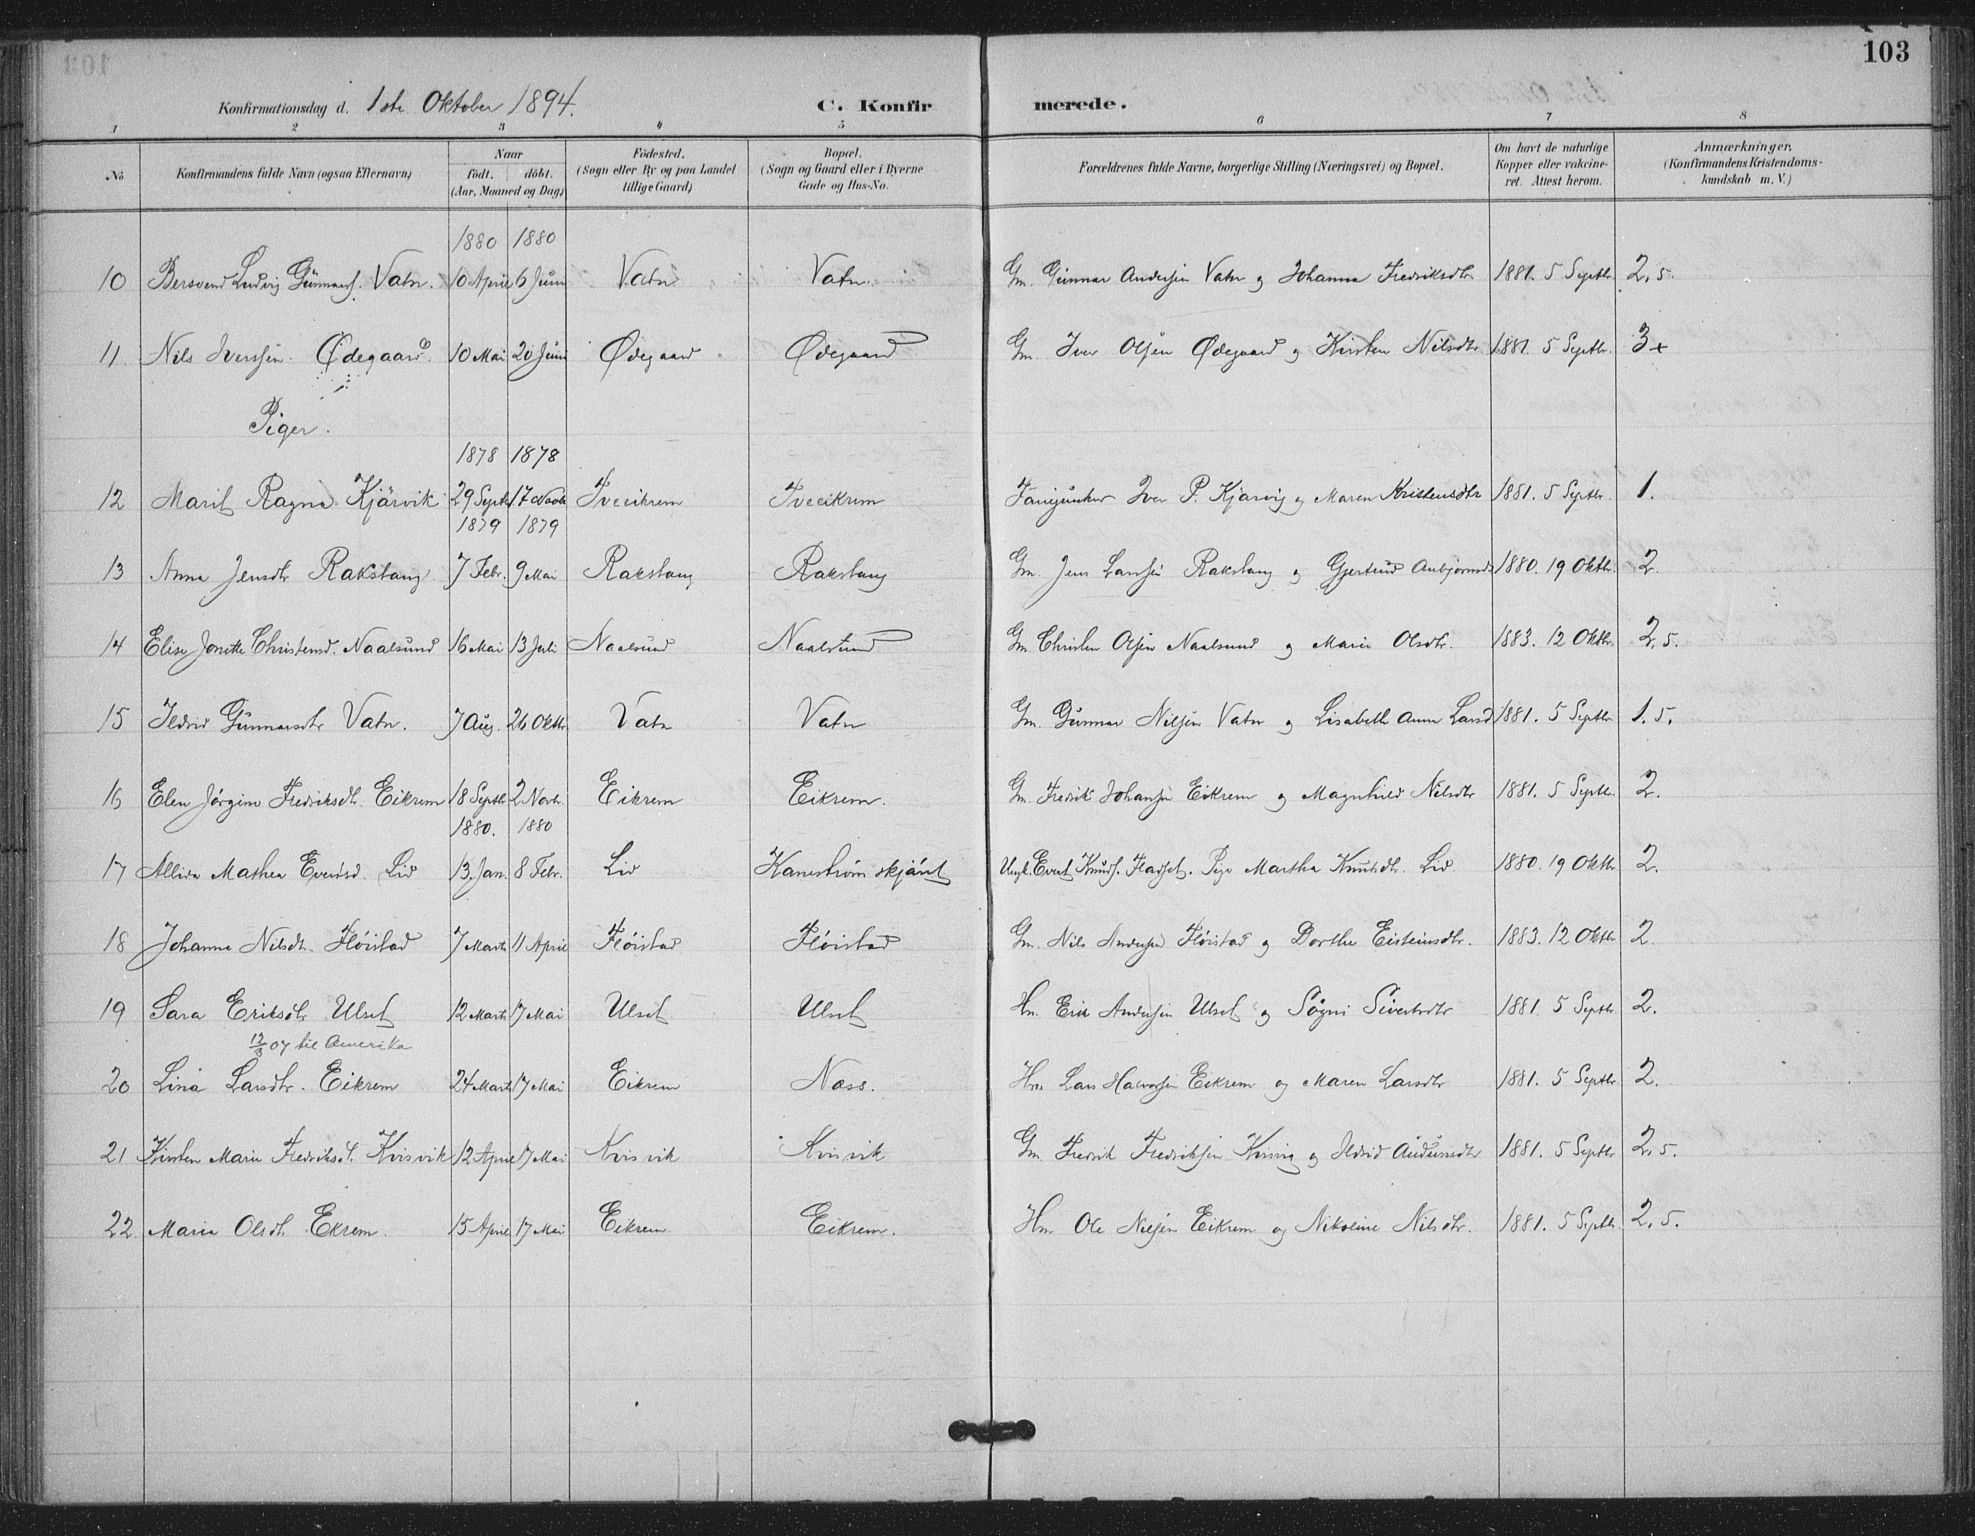 103
Konfirmationsdag d. 1ste Oktober 1894. C. Konfir merede.
1 2 3 4 5 6 7 8
No Konfirmandens fulde Navn (ogsaa Efternavn) Naar födt. döbt. (Aar, Maaned og Dag) Födested. (Sogn eller By og paa Landet tillige Gaard) Bopæl. (Sogn og Gaard eller i Byerne Gade og Hus-No. Forældrenes fulde Navne, borgerlige Stilling (Næringsvei) og Bopæl. Om havt de naturlige Kopper eller vakcineret. Attest herom. Anmærkninger. (Konfirmandens Kristendomskundskab m. V.)
1880 1880
10 Bersvend Ludvig Gunnars. Vatn. 10 April 6 Juni Vatn Vatn Gm. Gunnar Andersen Vatn og Johanna Fredriksdtr 1881. 5 Septbr. 2,5.
11. Nils Iverssen Ødegaard. 10 Mai 20 Juni Ødegaard Ødegaard Gm. Iver Olsen Ødegaard og Kirsten Nilsdtr 1881. 5 Septbr. 3+
Piger.
1878 1878
12 Marit Ragna Kjärvik 29 Septb. 17 Novb. Tveeikrem Tveeikrem Fanejunker Iver P. Kjärvig og Maren Kristensdtr 1881. 5 Septbr. 1.
1879 1879
13 Anna Jensdtr Rakstang 7 Febr. 9 Mai Rakstang Rakstang Gm. Jens Larssen Rakstang og Gjertrud Anbjörnsd. 1880. 19 Oktbr. 2.
14 Elise Jonette Christensd. Naalsund 16 Mai 13 Juli Naalsund Naalsund Gm. Christen Olsen Naalsund og Marie Olsdtr. 1883. 12 Oktbr. 2,5.
15 Ildrid Gunnarsdtr Vatn. 7 Aug. 26 Oktbr. Vatn Vatn Gm. Gunnar Nilsen Vatn og Lisabeth Anne Larsd 1881. 5 Septbr 1.5.
16 Elen Jörgine Fredriksdt. Eikrem 18 Septbr 2 Novb. Eikrem Eikrem. Gm. Fredrik Johansen Eikrem og Magnhild Nilsdtr 1881. 5 Septbr. 2.
1880. 1880
17 Allida Mathea Evertsd. Lid 13. Jan. 8 Febr. Lid Kanestrøm skjönt Ungk. Evert Knuds. Fladset. Pige Martha Knutsdtr. Lid 1880. 19 Oktbr 2.
18 Johanna Nilsdt. Flöistad 7 Marts 11 April Flöistad Flöistad Gm. Nils Andersen Flöistad og Dorthe Eisteinsdtr. 1883. 12 Oktbr 2.
19 Sara Eriksdtr Ulset 12 Marts 17 Mai Ulset Ulset Hm. Erik Andersen Ulset og Sögni Sivertsdtr 1881. 5 Septbr 2.
12/3 07 til Amerika
20 Lina Larsdtr. Eikrem 24 Marts 17 Mai Eikrem Næss. Hm. Lars Halvorsen Eikrem og Maren Larsdtr 1881. 5 Septbr 2.
21 Kirsten Marie Fredriksdt. Kvisvik 12 April 17 Mai Kvisvik Kvisvik Gm. Fredrik Fredriksen Kvisvig og Ildrid Audunsdtr 1881. 5 Septbr 2,5.
22 Maria Olsdt. Ekrem. 15 April 17 Mai Eikrem Eikrem. Hm Ole Nielsen Eikrem og Nikoline Nilsdtr. 1881. 5 Septbr. 2,5.